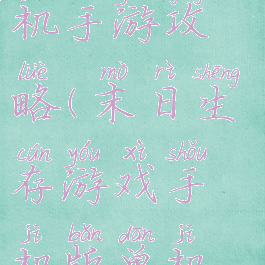 机手游攻
lüè mò rì shēng
略(末日生
cún yóu xì shǒu
存游戏手
jī bǎn dān jī
机版单机